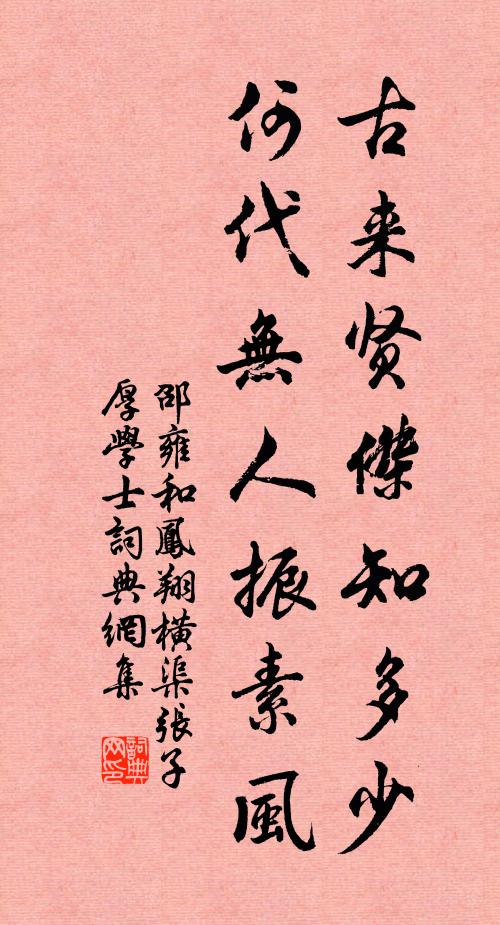 古来贤傑知多少
何代無人振素風
邵雍和鳳翔横渠張子
厚學士詞典網集
詞典
网印